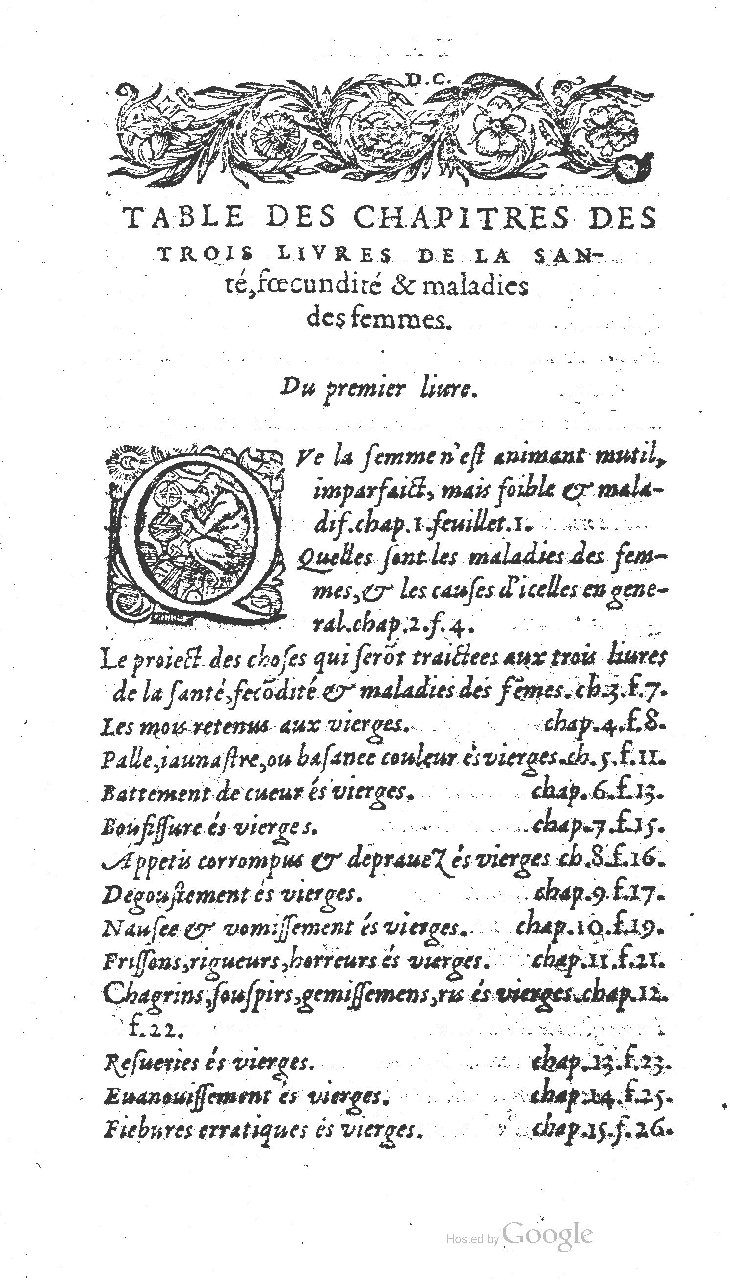 D.C.
TABLE DES CHAPITRES DES
TROIS LIVRES DE LA SAN-
té, fœcundité & maladies
des femmes.
Du premier liure.
QVe la femme n'est animant mutil,
imparfaict, mais foible & mala-
dif. chap. 1. feuillet. 1.
Quelles sont les maladies des fem-
mes, & les causes d'icelles en gene-
ral. chap. 2. f. 4.
Le proiect des choses qui serõt traictees aux trois liures
de la santé, fecõdité & maladies des fẽmes. ch. 3. f. 7.
Les mois retenus aux vierges. chap. 4. f. 8.
Palle, iaunastre, ou basanee couleur és vierges. ch. 5. f. 11.
Battement de cueur és vierges. chap. 6. f. 13.
Boufissure és vierges. chap. 7. f. 15.
Appetis corrompus & deprauez és vierges ch. 8. f. 16.
Degoustement és vierges. chap. 9. f. 17.
Nausee & vomissement és vierges. chap. 10. f. 19.
Frissons, rigueurs, horreurs és vierges. chap. 11. f. 21.
Chagrins, souspirs, gemissemens, ris és vierges. chap. 12.
f. 22.
Resueries és vierges. chap. 13. f. 23.
Euanouissement és vierges. chap. 14. f. 25.
Fiebures erratiques és vierges. chap. 15. f. 26.
Hosted by Google